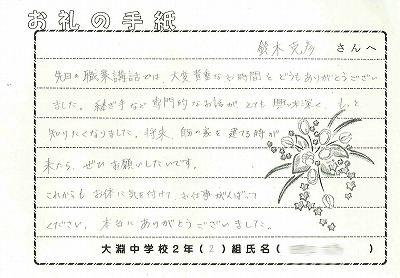 お礼の手紙
鈴木克彦 さんへ
先日の職業講話では、大変貴重なお時間をどうもありがとうござい
ました。継ぎ手など専門的なお話がとても興味深く、もっと
知りたくなりました。将来、自分の家を建てる時が
来たら、ぜひお願いしたいです。
これからもお体に気を付けて、お仕事がんばって
ください。本当にありがとうございました。
大淵中学校2年(2)組氏名( )